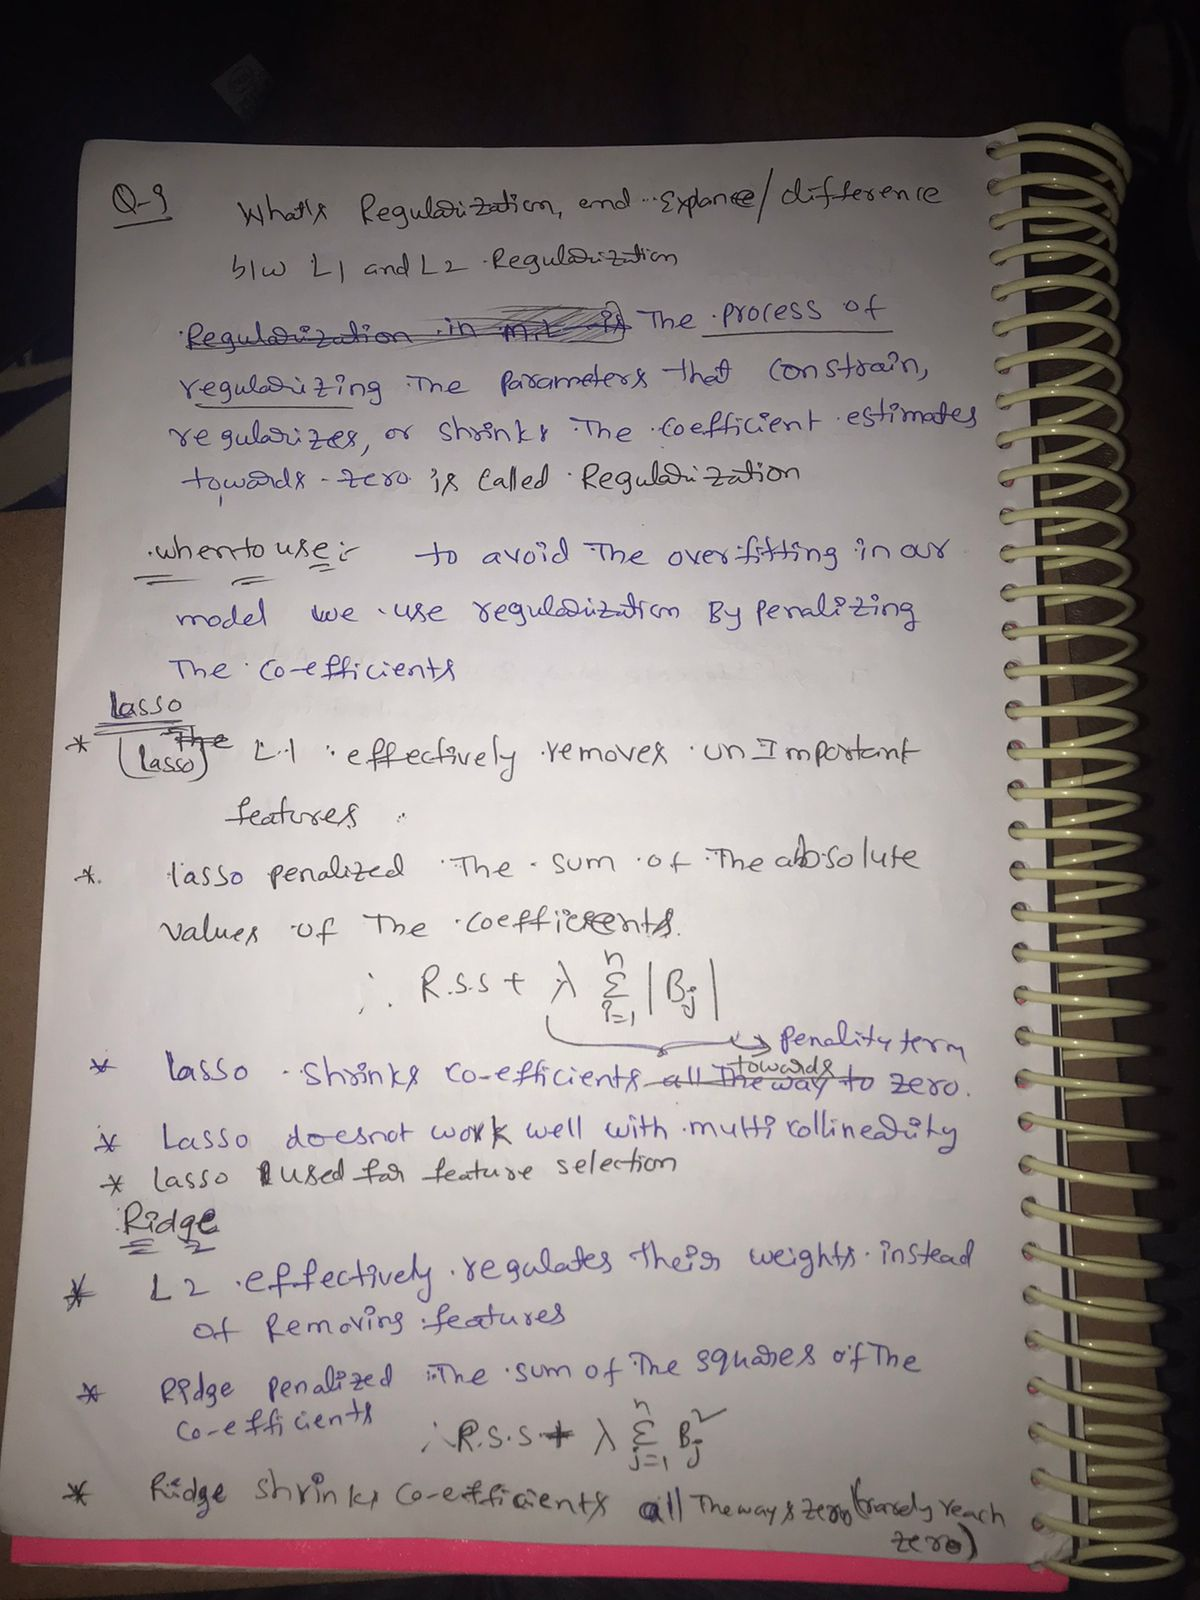 Q-9 What's Regularization, and Explanee/difference
b/w L1 and L2 Regularization
Regularization in M.L is The process of
regularizing The Parameters that Constrain,
regularizes, or shrinks The coefficient estimates
towards zero is Called Regularization
when to use :- to avoid The over fitting in our
model we use regularization By Penalizing
The Co-efficients
Lasso
* The (lasso) L1 effectively removes un Important
features.
* lasso penalized The sum of The absolute
values of The coefficients.
∴ R.S.S + λ n Σ i=1 |Bj|
Penality term
towards
* lasso shrinks co-efficients all The way to zero.
* Lasso doesnot work well with multi collinearity
* Lasso used for feature selection
Ridge
* L2 effectively regulates their weights instead
of Removing features
* Ridge penalized The sum of The squares of The
Co-efficients
∴ R.S.S + λ n Σ j=1 Bj²
* Ridge shrinks co-efficients all The way s zero (rarely reach
zero)